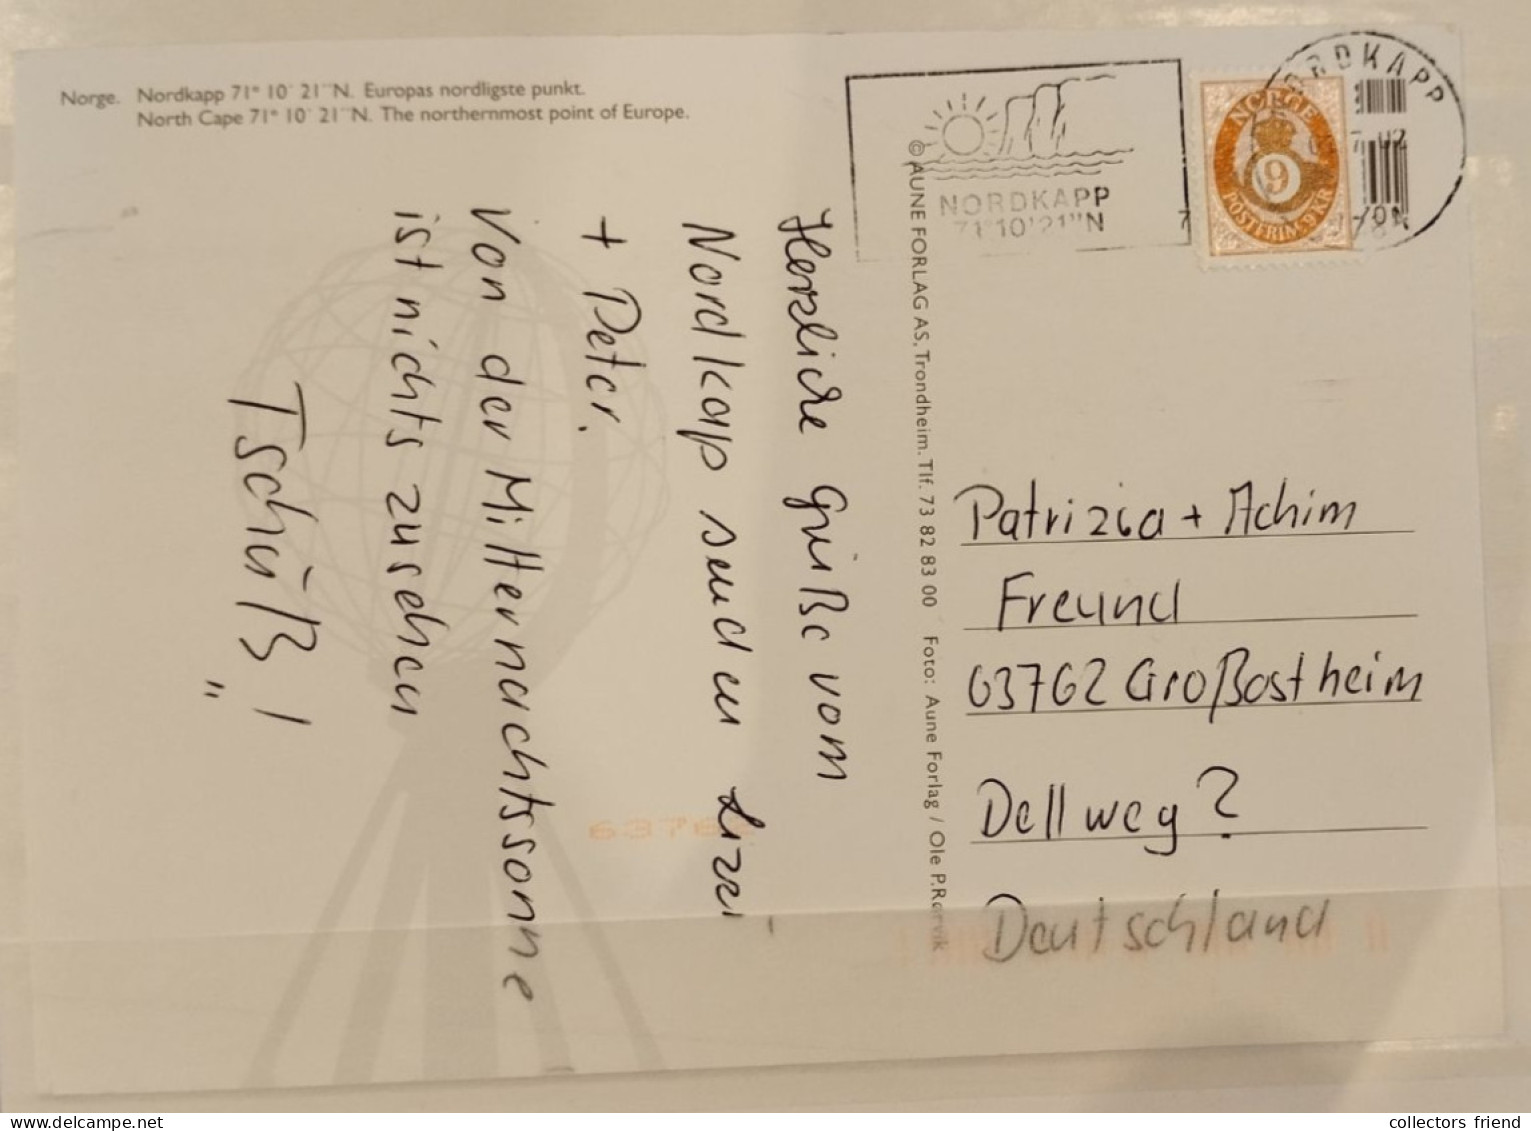 Norge. Nordkapp 71° 10' 21"N. Europas nordligste punkt.
North Cape 71° 10' 21"N. The northernmost point of Europe.
Herzliche Grüße vom
Nordkap senden Lizzi
+ Peter.
Von der Mitternachtssonne
ist nichts zu sehen
Tschüß!
© AUNE FORLAG AS, Trondheim. Tlf. 73 82 83 00 Foto: Aune Forlag / Ole P. Rørvik
NORDKAPP
71°10'21"N
NORGE
9
POSTERIM 9 KR
NORDKAPP
Patrizia + Achim
Freund
63762 Großostheim
Dellweg?
Deutschland
collectors friend